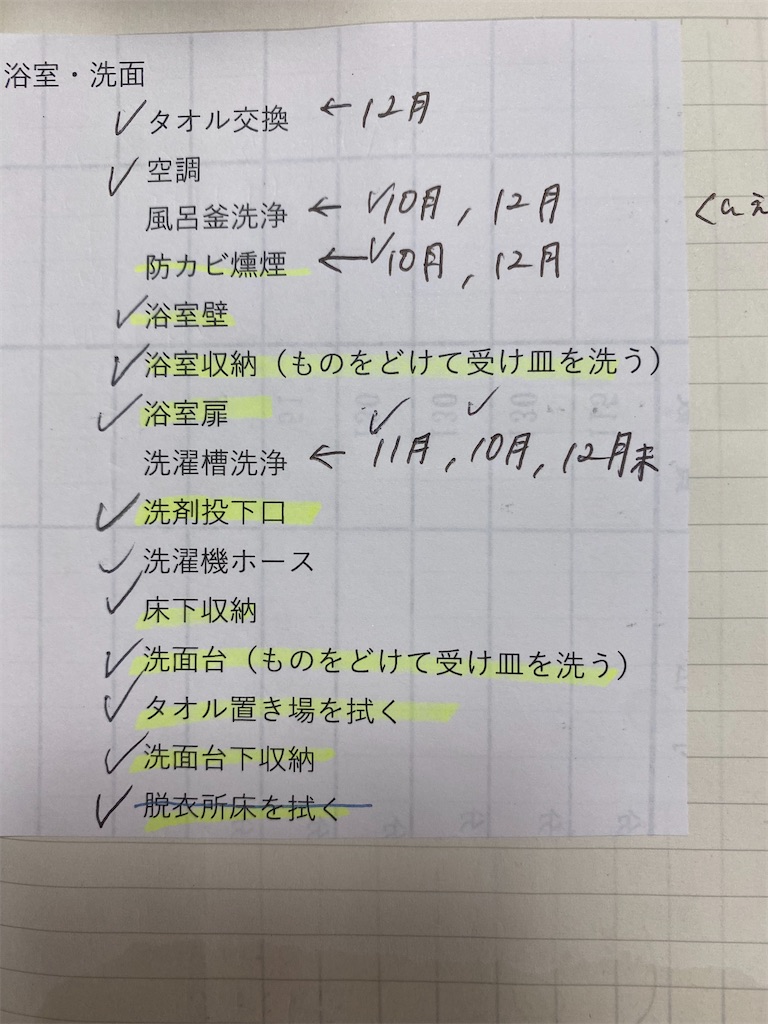 浴室・洗面
✓タオル交換 ←12月
✓空調
風呂釜洗浄 ←✓10月，12月
防カビ燻煙 ←✓10月，12月
✓浴室壁
✓浴室収納（ものをどけて受け皿を洗う）
✓浴室扉
洗濯槽洗浄 ←✓11月，✓10月，12月末
✓洗剤投下口
✓洗濯機ホース
✓床下収納
✓洗面台（ものをどけて受け皿を洗う）
✓タオル置き場を拭く
✓洗面台下収納
✓脱衣所床を拭く